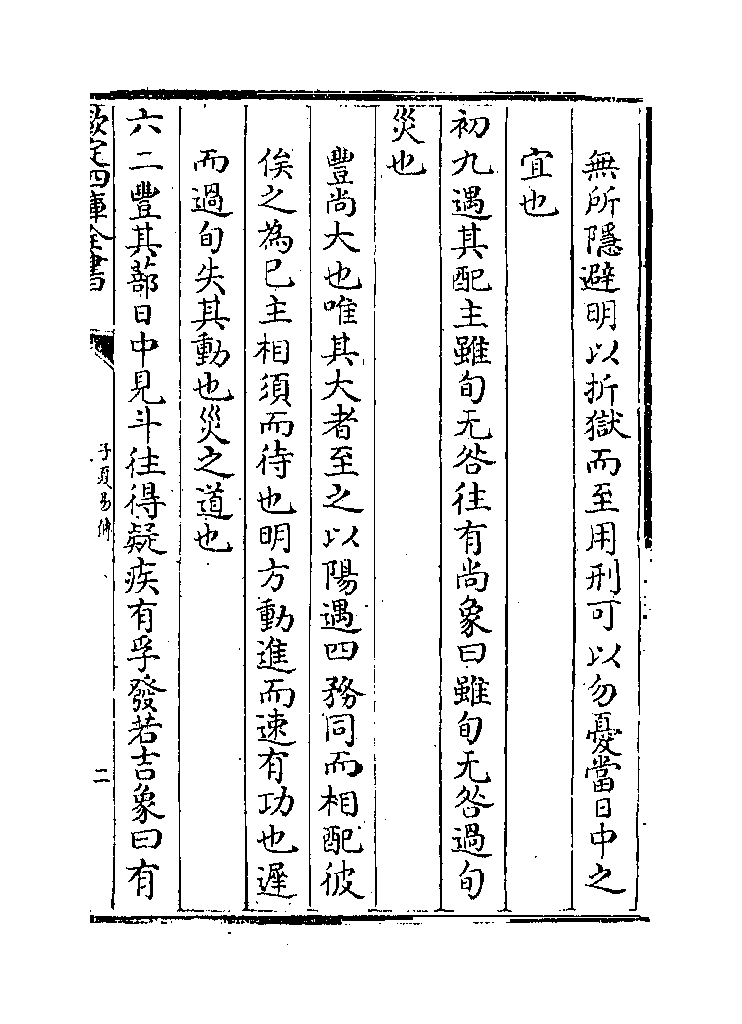 無所隱避明以折獄而至用刑可以勿憂當日中之
宜也
初九遇其配主雖旬无咎往有尚象曰雖旬无咎過旬
災也
豐尚大也唯其大者至之以陽遇四務同而相配彼
俟之為已主相須而待也明方動進而速有功也遲
而過旬失其動也災之道也
六二豐其蔀日中見斗往得疑疾有孚發若吉象曰有
欽定四庫全書
子夏易傳
二